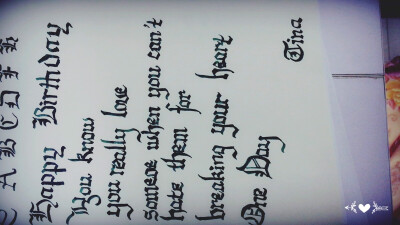 A B C D F H
Happy Birthday
You know
you really love
someoe when you can't
hate them for
breaking your heart
One Day
Tina